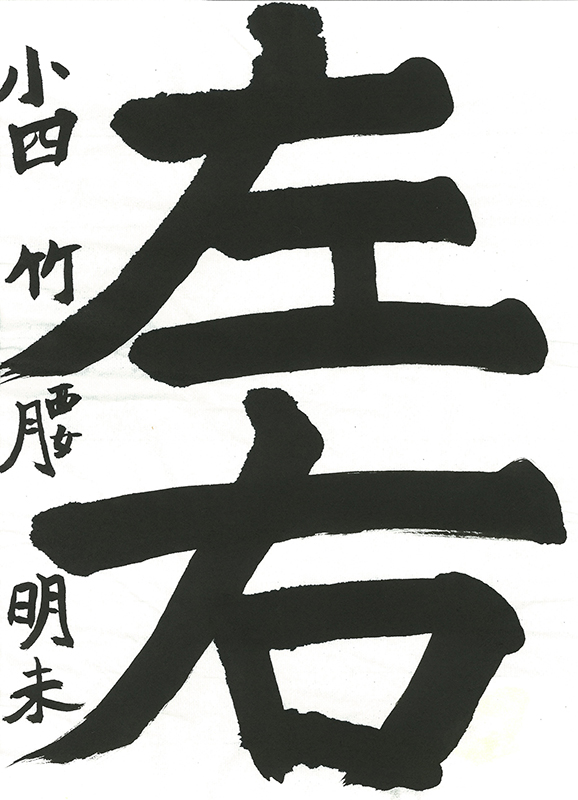 左右
小四 竹腰明未